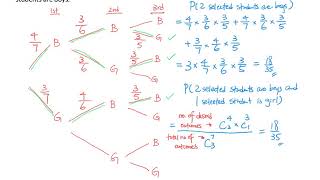 students are boys.
1st 2nd 3rd
4/7 B 3/6 B B
3/5 G
G 3/5 B
G
3/7 G 4/6 B 3/5 B
G
G B
G
P(2 selected students are boys)
= 4/7 × 3/6 × 3/5 + 4/7 × 3/6 × 3/5
+ 3/7 × 4/6 × 3/5
= 4/7 × 3/6 × 3/5 × 3 = 18/35
P(2 selected students are boys and
1 selected student is girl)
no. of desired
outcomes → C
= = 18/35
total no. of
outcomes → C